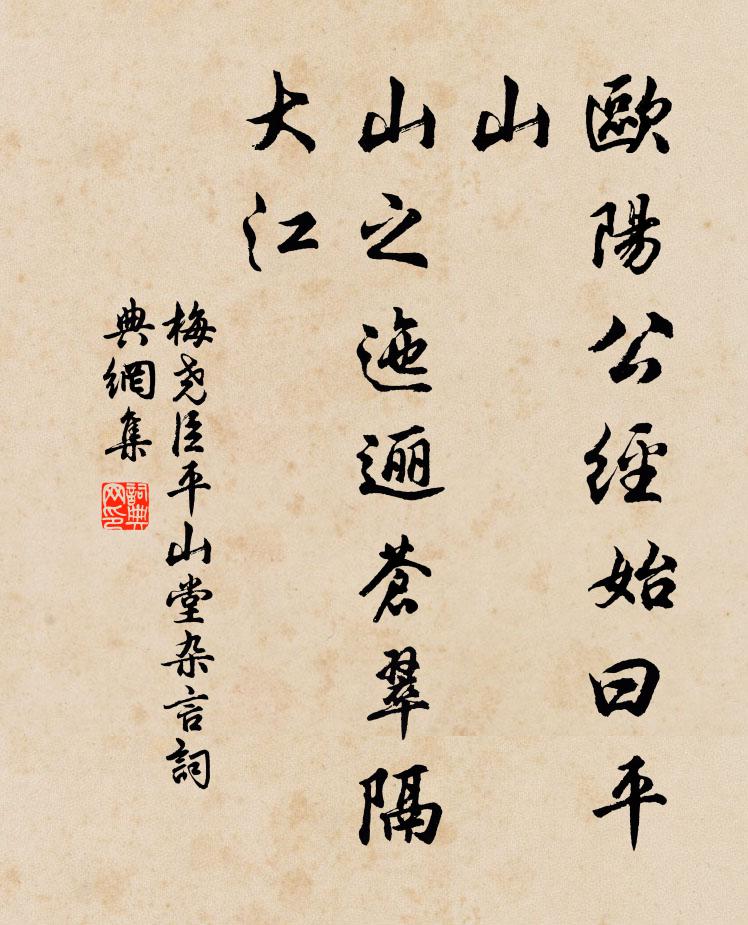 歐陽公經始曰平
山
山之迤邐蒼翠隔
大江
梅尧臣平山堂杂言詞
典網集
詞典
网印